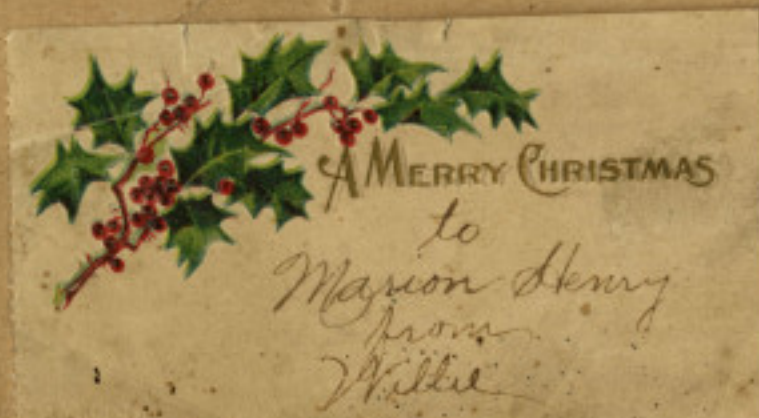 A MERRY CHRISTMAS
to
Marion Henry
from
Willie